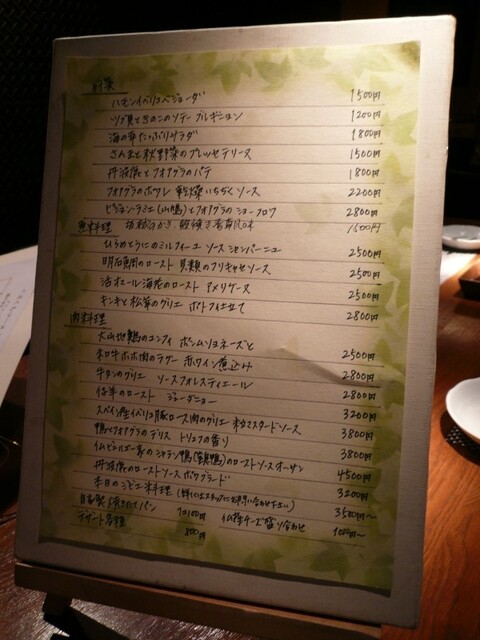 前菜
ハモンイベリコベジョータ 1500円
ツブ貝ときのこのソテー ブルギニョン 1200円
海の幸たっぷりサラダ 1800円
さんまと秋野菜のプレッセテリーヌ 1500円
丹波産とフォアグラのパテ 1800円
フォアグラのポワレ 乾燥いちぢくソース 2200円
とフォアグラのショーフロワ 2800円
魚料理 1600円
ひらめとうにのミルフィーユ ソースシャンパーニュ 2500円
明石真鯛のロースト 貝類のフリカッセソース 2500円
活オマール海老のロースト アメリケーヌ 2500円
キンキと松茸のグリエ ポトフ仕立て 2800円
肉料理
大山地鶏のコンフィ ポンムリヨネーズと 2500円
和牛ホホ肉のラグー 赤ワイン煮込み 2800円
牛タンのグリエ ソースフォレスティエール 2800円
仔羊のロースト 3200円
スペイン産イベリコ豚ロース肉のグリエ 粒マスタードソース 3800円
鴨とフォアグラのデリス トリュフの香り 3800円
仏ビュルゴー家のシャラン鴨のローストソースオーサン 4500円
丹波産のローストソースポワブラード 3200円
本日のジビエ料理 3500円～
自家製焼きたてパン 1コ100円 仏産チーズ盛り合わせ 1000円～
デザート各種 800円